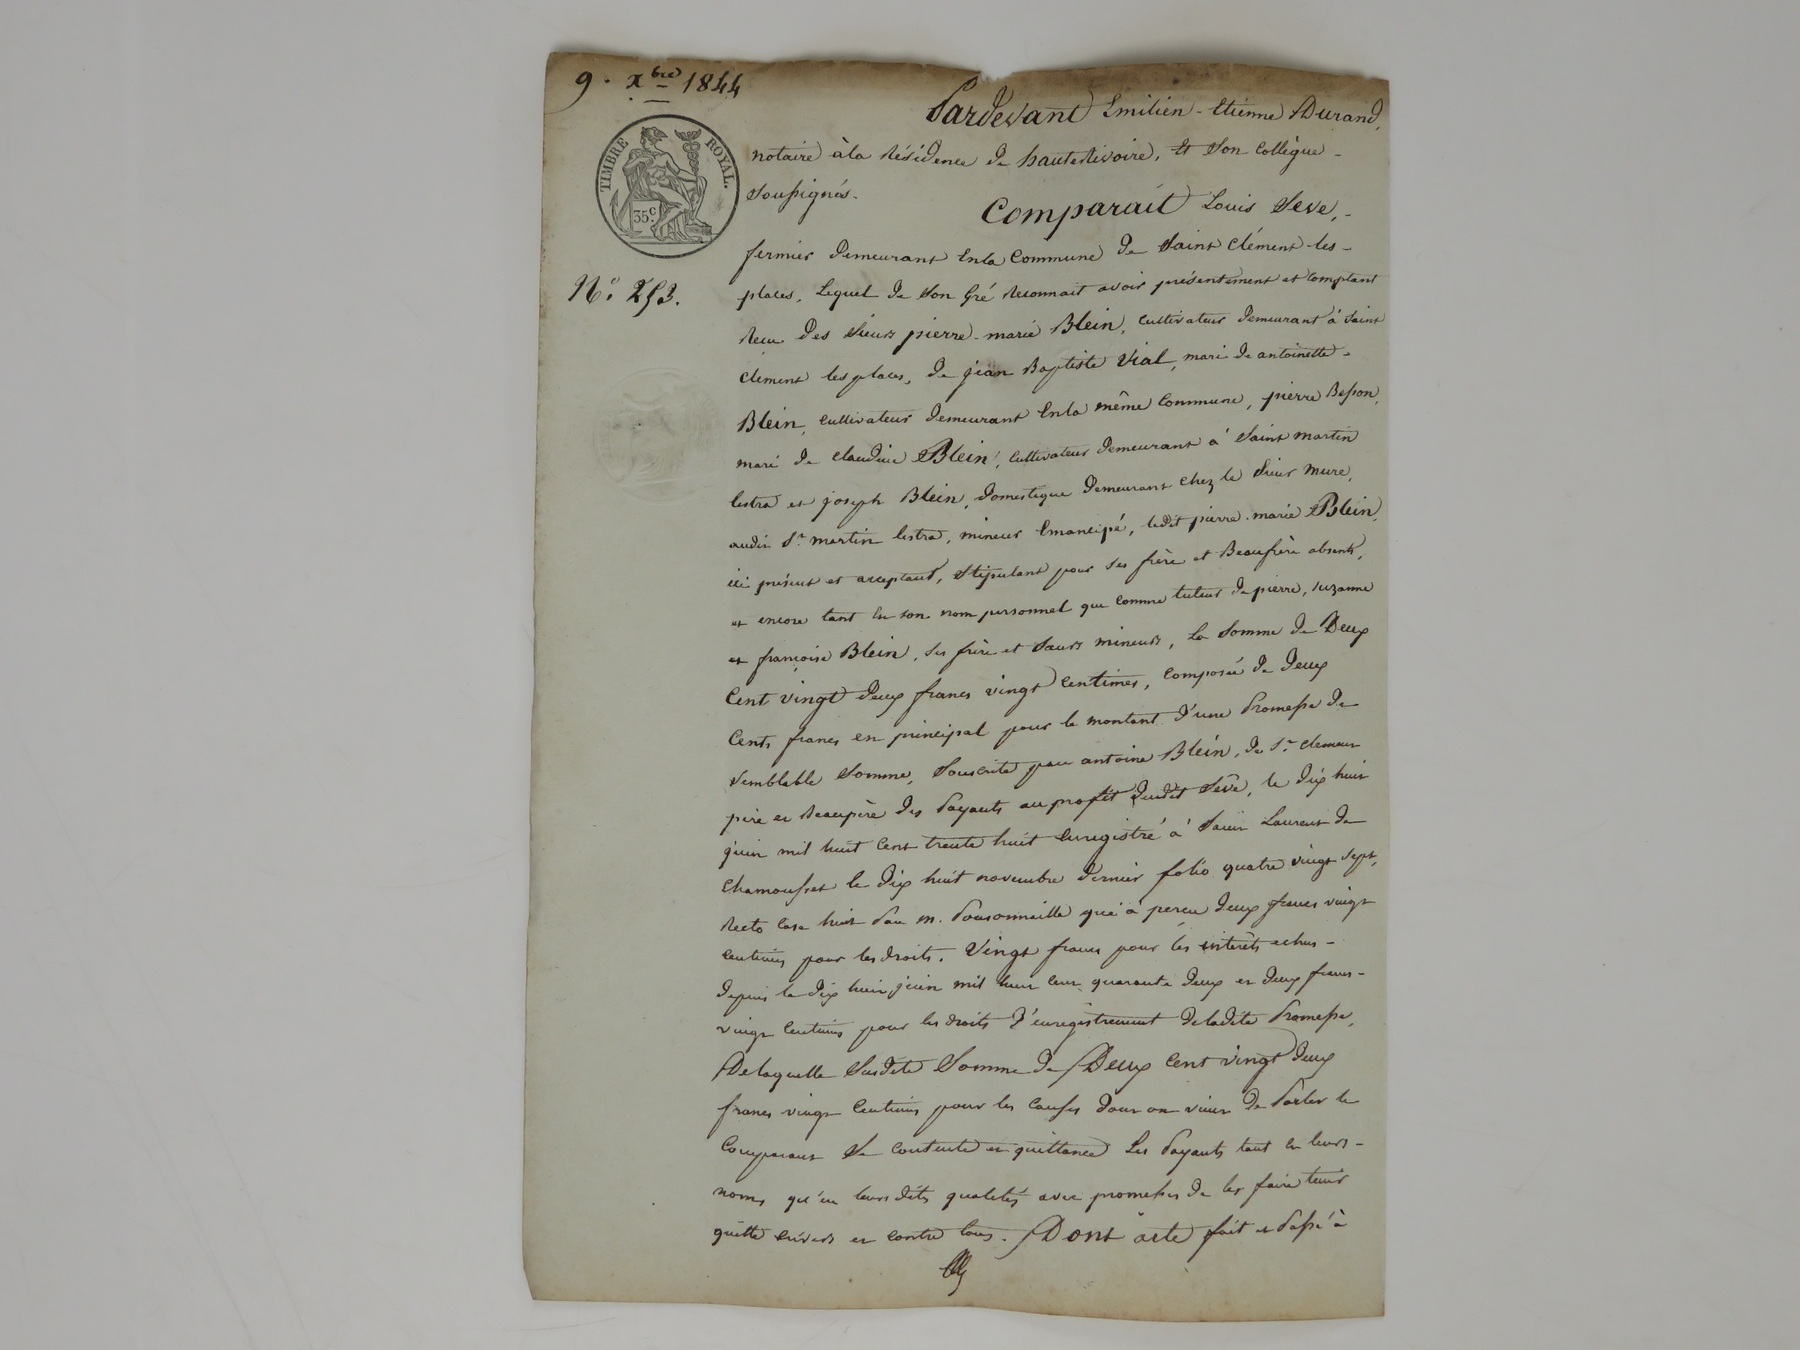 9. xbre 1844
TIMBRE ROYAL.
35c.
No. 253.
Pardevant Emilien-Etienne Durand,
notaire à la Résidence de hauterivoire, et son collègue
soussignés.
Comparait Louis Seve,
fermier demeurant en la commune de Saint Clément-les-
places, lequel de son gré reconnait avoir présentement et comptant
reçu des sieurs pierre-marie Blein, cultivateur demeurant à Saint
clément les places, de jean Baptiste Vial, mari de antoinette
Blein, cultivateur demeurant en la même commune, pierre Besson,
mari de claudine Blein, cultivateur demeurant à Saint martin
lestra et joseph Blein, domestique demeurant chez le sieur mure,
audit St. martin lestra, mineur émancipé, ledit pierre-marie Blein,
ici présent et acceptant, stipulant pour ses frère et Beaufrère absents,
et encore tant en son nom personnel que comme tuteur de pierre, suzanne
et françoise Blein, ses frère et sœurs mineurs, la somme de Deux
cent vingt deux francs vingt centimes, composée de deux
cents francs en principal pour le montant d'une promesse de
semblable somme, souscrite par antoine Blein, de St. clément
père et Beaupère des payants au profit dudit Sève, le dix huit
juin mil huit cent trente huit enregistré à Saint Laurent de
chamousset le dix huit novembre dernier folio quatre vingt sept,
recto case huit par m. qui a perçu deux francs vingt
centimes pour les droits. Vingt francs pour les intérêts échus
depuis le dix huit juin mil huit cent quarante deux et deux francs
vingt centimes pour les droits d'enregistrement de ladite promesse,
De laquelle susdite somme de Deux cent vingt deux
francs vingt centimes pour les causes dont on vient de parler le
comparant se contente et quittance les payants tant en leurs
noms qu'en leurs dites qualités avec promesses de les faire tenir
quitte envers et contre tous. Dont acte fait et passé à